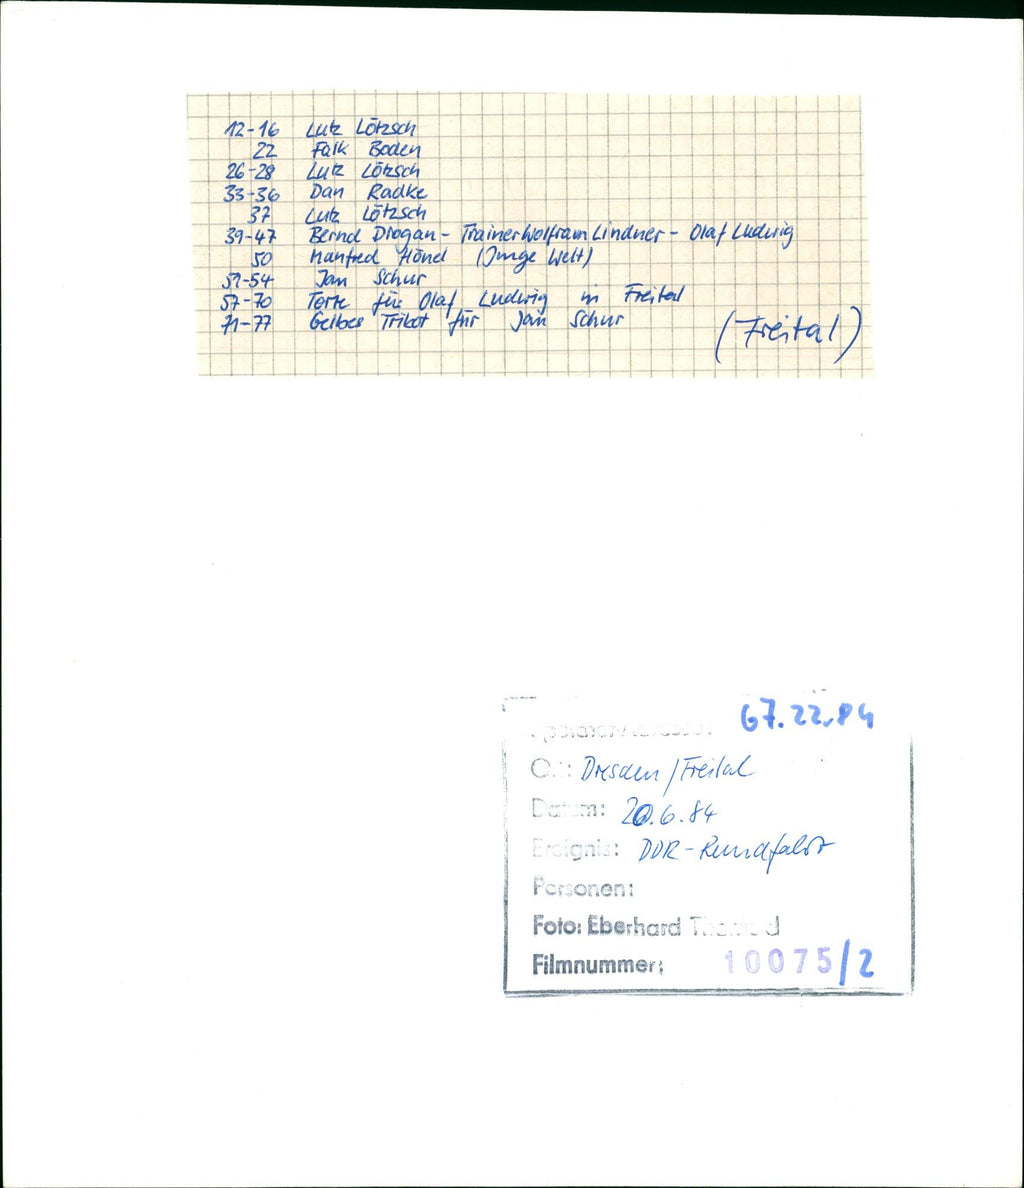 12-16 Lutz Lötzsch
22 Falk Boden
26-28 Lutz Lötzsch
33-36 Dan Radtke
37 Lutz Lötzsch
39-47 Bernd Drogan - Trainer Wolfram Lindner - Olaf Ludwig
50 Manfred Hönel (Junge Welt)
51-54 Jan Schur
57-70 Torte für Olaf Ludwig in Freital
71-77 Gelbes Trikot für Jan Schur
(Freital)
67.22.84
Ort: Dresden/Freital
Datum: 20.6.84
Ereignis: DDR-Rundfahrt
Personen:
Foto: Eberhard
Filmnummer: 10075/2